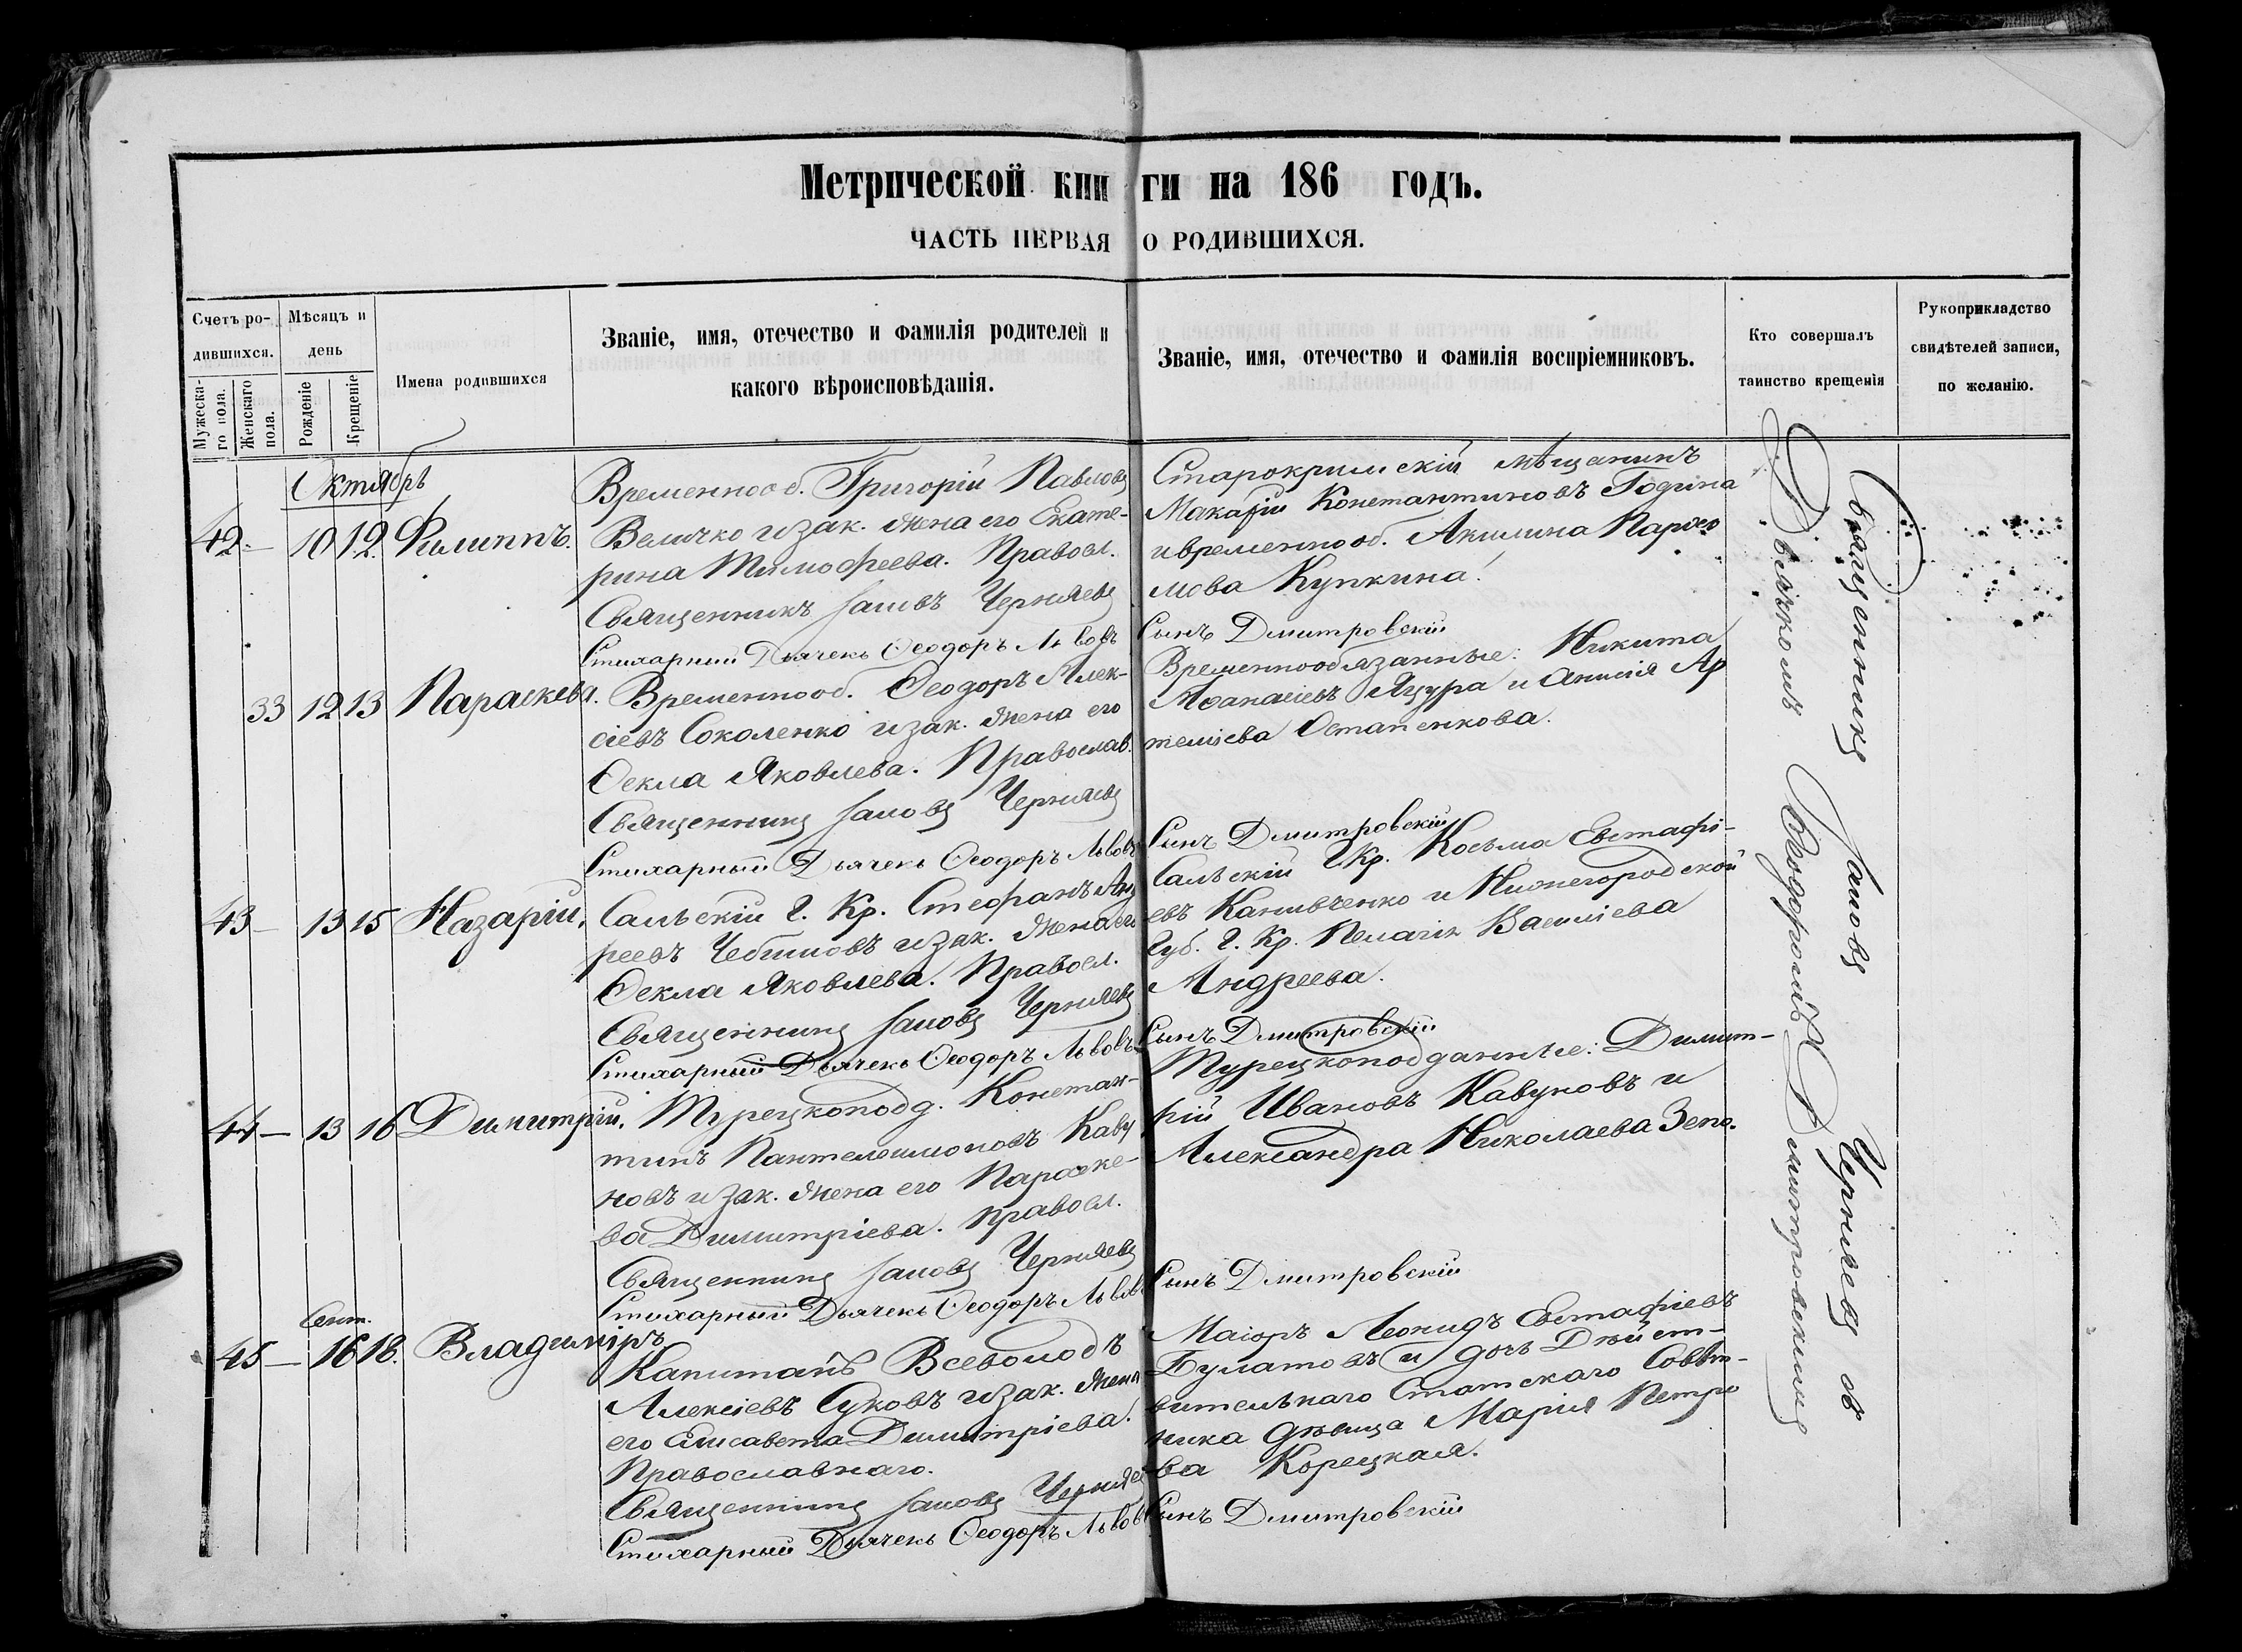 Метрической кни ги на 186 годъ.
ЧАСТЬ ПЕРВАЯ О РОДИВШИХСЯ.
Счетъ ро-
дившихся.
Мужеска-
го пола.
Женскаго
пола.
Мѣсяцъ и
день
Рожденіе
Крещеніе
Имена родившихся
Званіе, имя, отечество и фамилія родителей и
какого вѣроисповѣданія.
Званіе, имя, отечество и фамилія воспріемниковъ.
Кто совершалъ
таинство крещенія
Рукоприкладство
свидѣтелей записи,
по желанію.
Октябрь
42 — 10 12 Филиппъ.
Временнооб. Григорій Павловъ
Величко и зак. жена его Екате-
рина Тимофеева. Правосл.
Священникъ Іаковъ Черняевъ
Стихарный Дьячекъ Ѳеодоръ Львовъ
Старокримскій мѣщанинъ
Макарій Константиновъ Година
и временнооб. Акилина Пархо
мова Купкина.
Сынъ Дмитровскій
33 12 13 Параскева.
Временнооб. Ѳеодоръ Алек-
сіевъ Соколенко и зак. жена его
Ѳекла Яковлева. Православ.
Священникъ Іаковъ Черняевъ
Стихарный Дьячекъ Ѳеодоръ Львовъ
Временнообязанные: Никита
Аѳанасіевъ Яцура и Анисія Ар
темиева Остапенкова.
Сынъ Дмитровскій
43 — 13 15 Назарій.
Сальскій Г. Кр. Стефанъ Анд
реевъ и зак. жена его
Ѳекла Яковлева. Правосл.
Священникъ Іаковъ Черняевъ
Стихарный Дьячекъ Ѳеодоръ Львовъ
Сальскій Г. Кр. Косьма Евстафі-
евъ Канивченко и Нижегородской
Губ. Г. Кр. Пелагія Василіева
Андреева.
Сынъ Дмитровскій
44 — 13 16 Димитрій.
Турецкоподд. Констан-
тинъ Пантелеимоновъ Каву
новъ и зак. жена его Параске-
ва Димитріева. Правосл.
Священникъ Іаковъ Черняевъ
Стихарный Дьячекъ Ѳеодоръ Львовъ
Турецкоподданные: Димит-
рій Ивановъ Кавуновъ и
Александра Николаева Зепо.
Сынъ Дмитровскій
Сент.
45 — 16 18. Владиміръ
Капитанъ Всеволодъ
Алексіевъ Суковъ и зак. жена
его Елисавета Димитріева.
Православнаго.
Священникъ Іаковъ Черняев
Стихарный Дьячекъ Ѳеодоръ Львов
Маіоръ Леонидъ Евстафіевъ
Булатовъ и дочь Дѣйст-
вительнаго Статскаго Совѣт-
ника дѣвица Марія Петро
ва Корецкая.
Сынъ Дмитровскій
Священникъ Іаковъ Черняевъ съ
Дьячкомъ Ѳеодоромъ Димитровскимъ